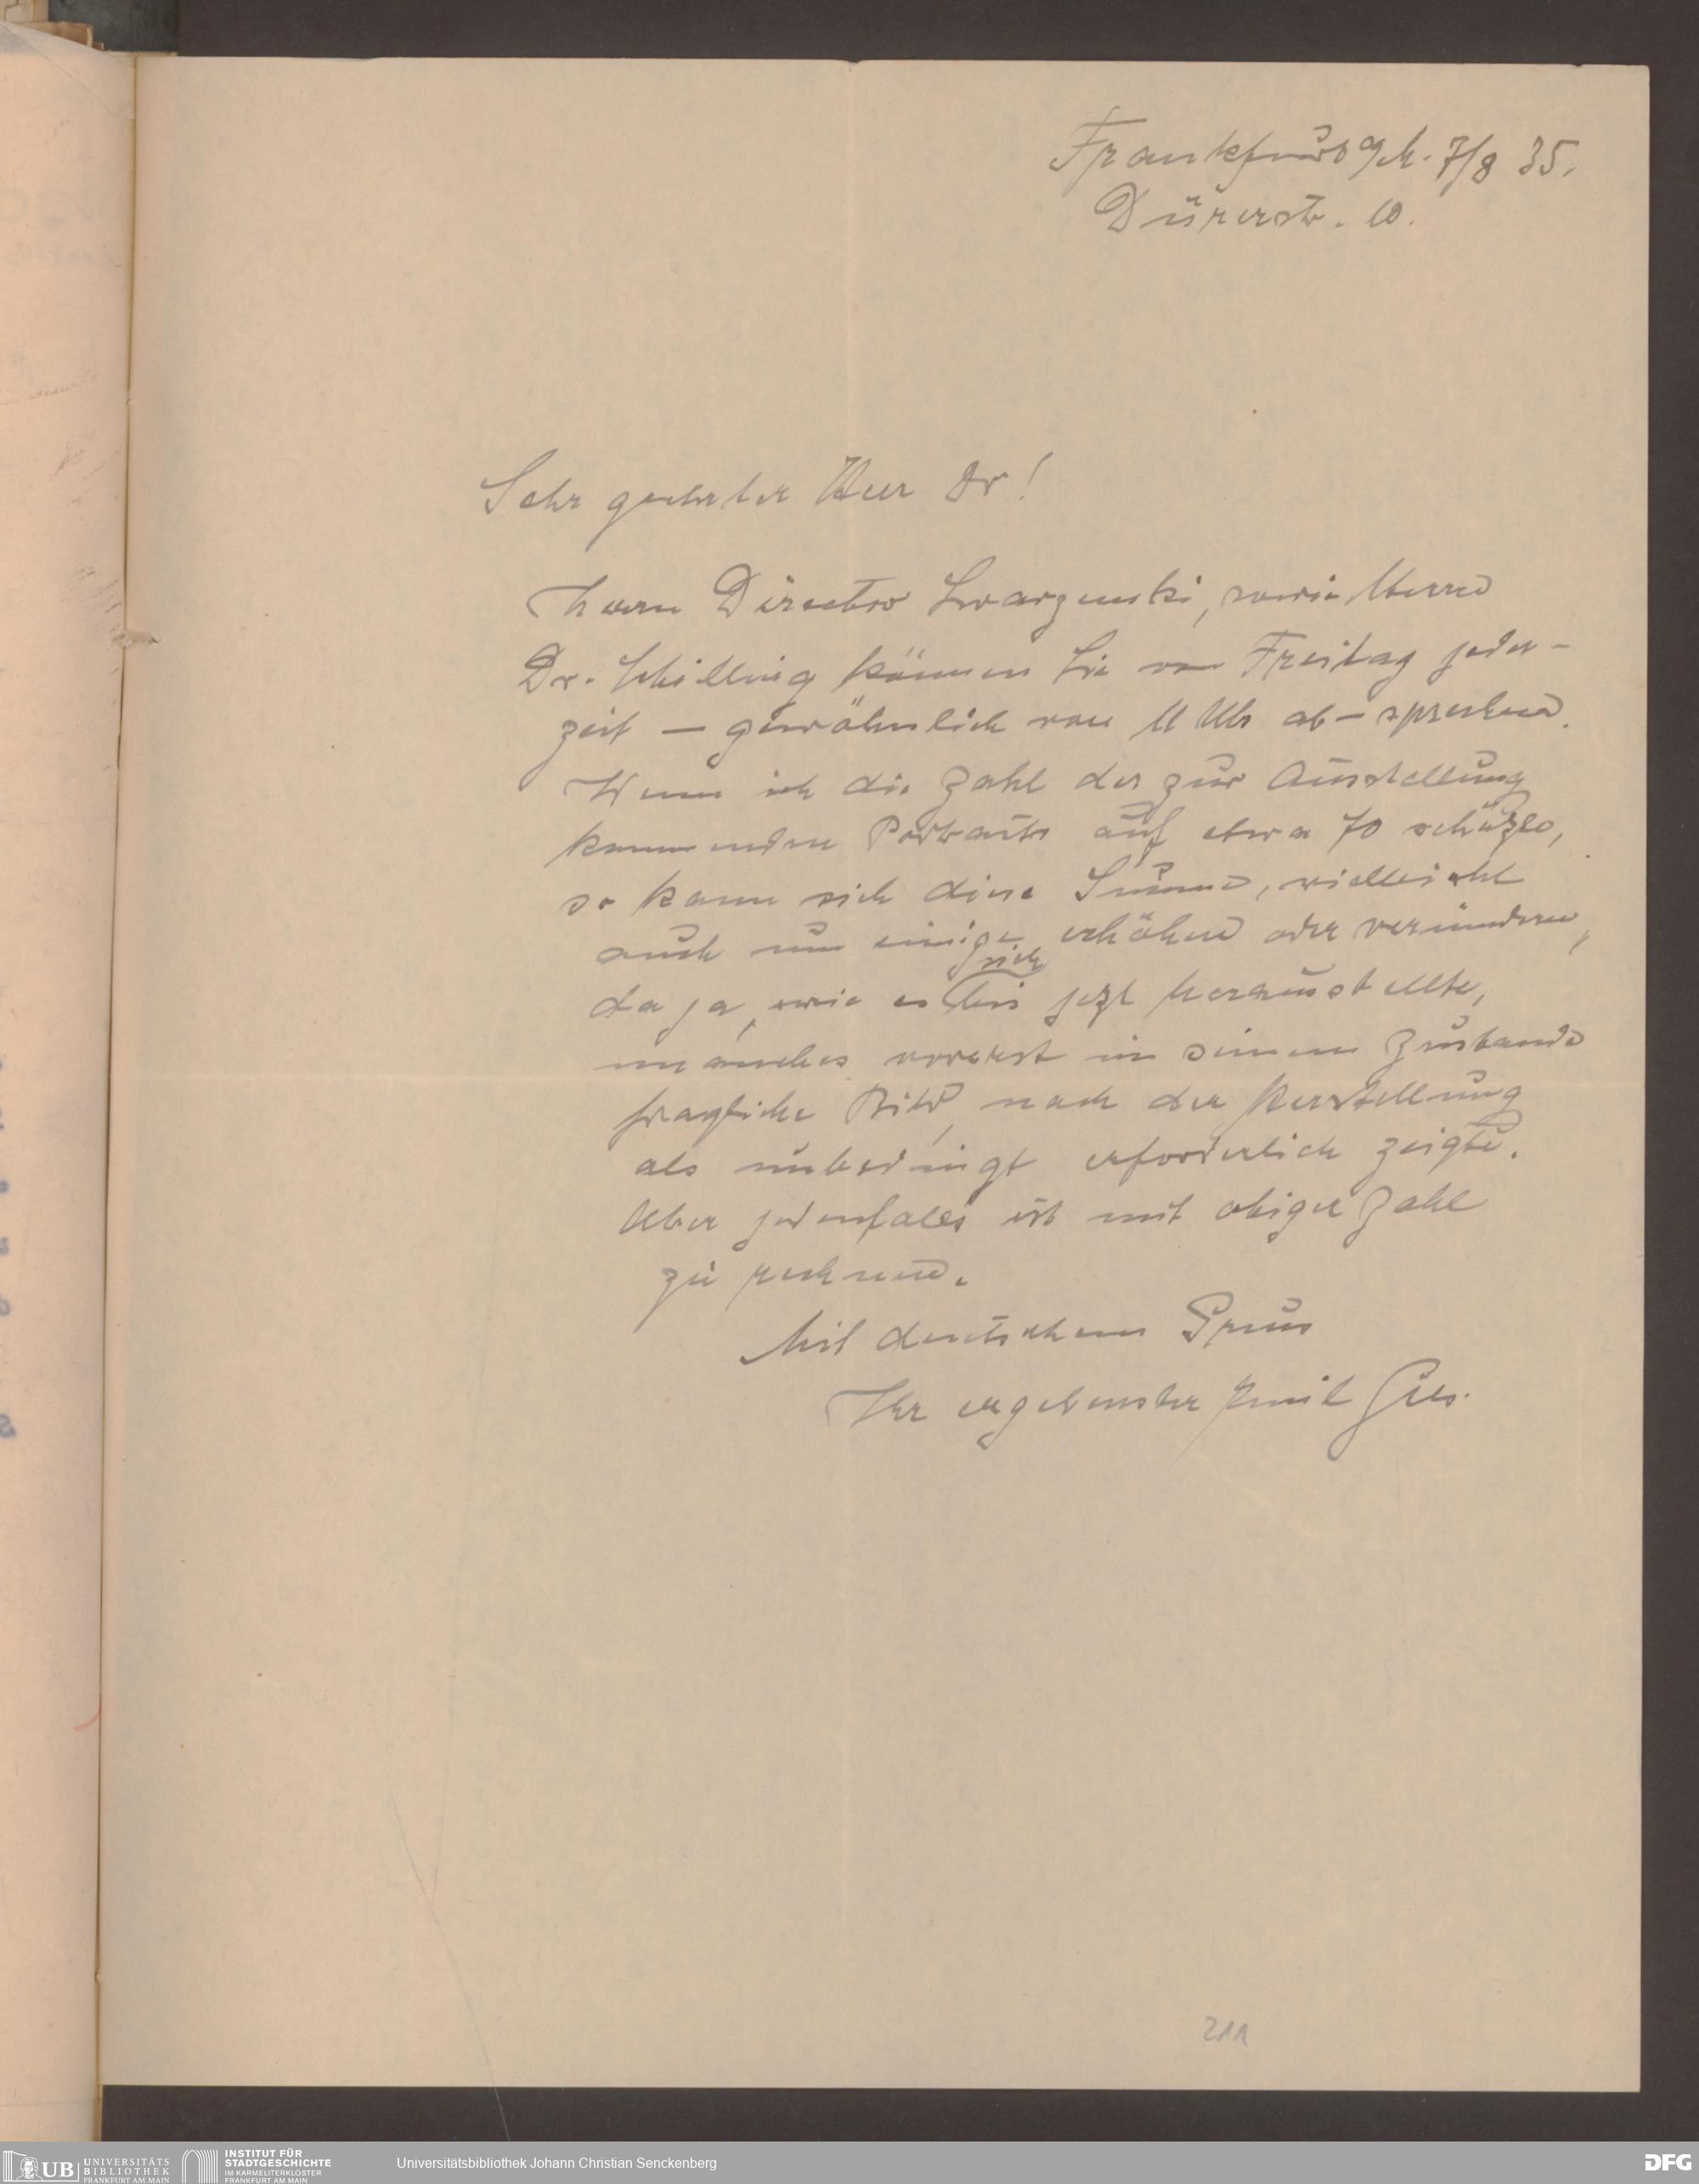 Frankfurt a/M. 7/8 35.
Dürerstr. 10.
Sehr geehrter Herr Dr!
Herrn Director Swarzenski, sowie Herrn
Dr. Schilling können Sie von Freitag jeder-
zeit — gewöhnlich von 11 Uhr ab — sprechen.
Wenn ich die Zahl der zur Ausstellung
kommenden Portraits auf etwa 70 schätze,
so kann sich diese Summe, vielleicht
auch um einige, erhöhen oder vermindern,
sich
da ja, wie es bis jezt herausstellte,
manches vorerst in seinem Zustande
fragliche Bild, nach der Herstellung
als unbedingt erforderlich zeigte.
Aber jedenfalls ist mit obiger Zahl
zu rechnen.
Mit deutschem Gruss
Ihr ergebenster Emil Gies.
211
UB UNIVERSITÄTS
BIBLIOTHEK
FRANKFURT AM MAIN
INSTITUT FÜR
STADTGESCHICHTE
IM KARMELITERKLOSTER
FRANKFURT AM MAIN
Universitätsbibliothek Johann Christian Senckenberg
DFG